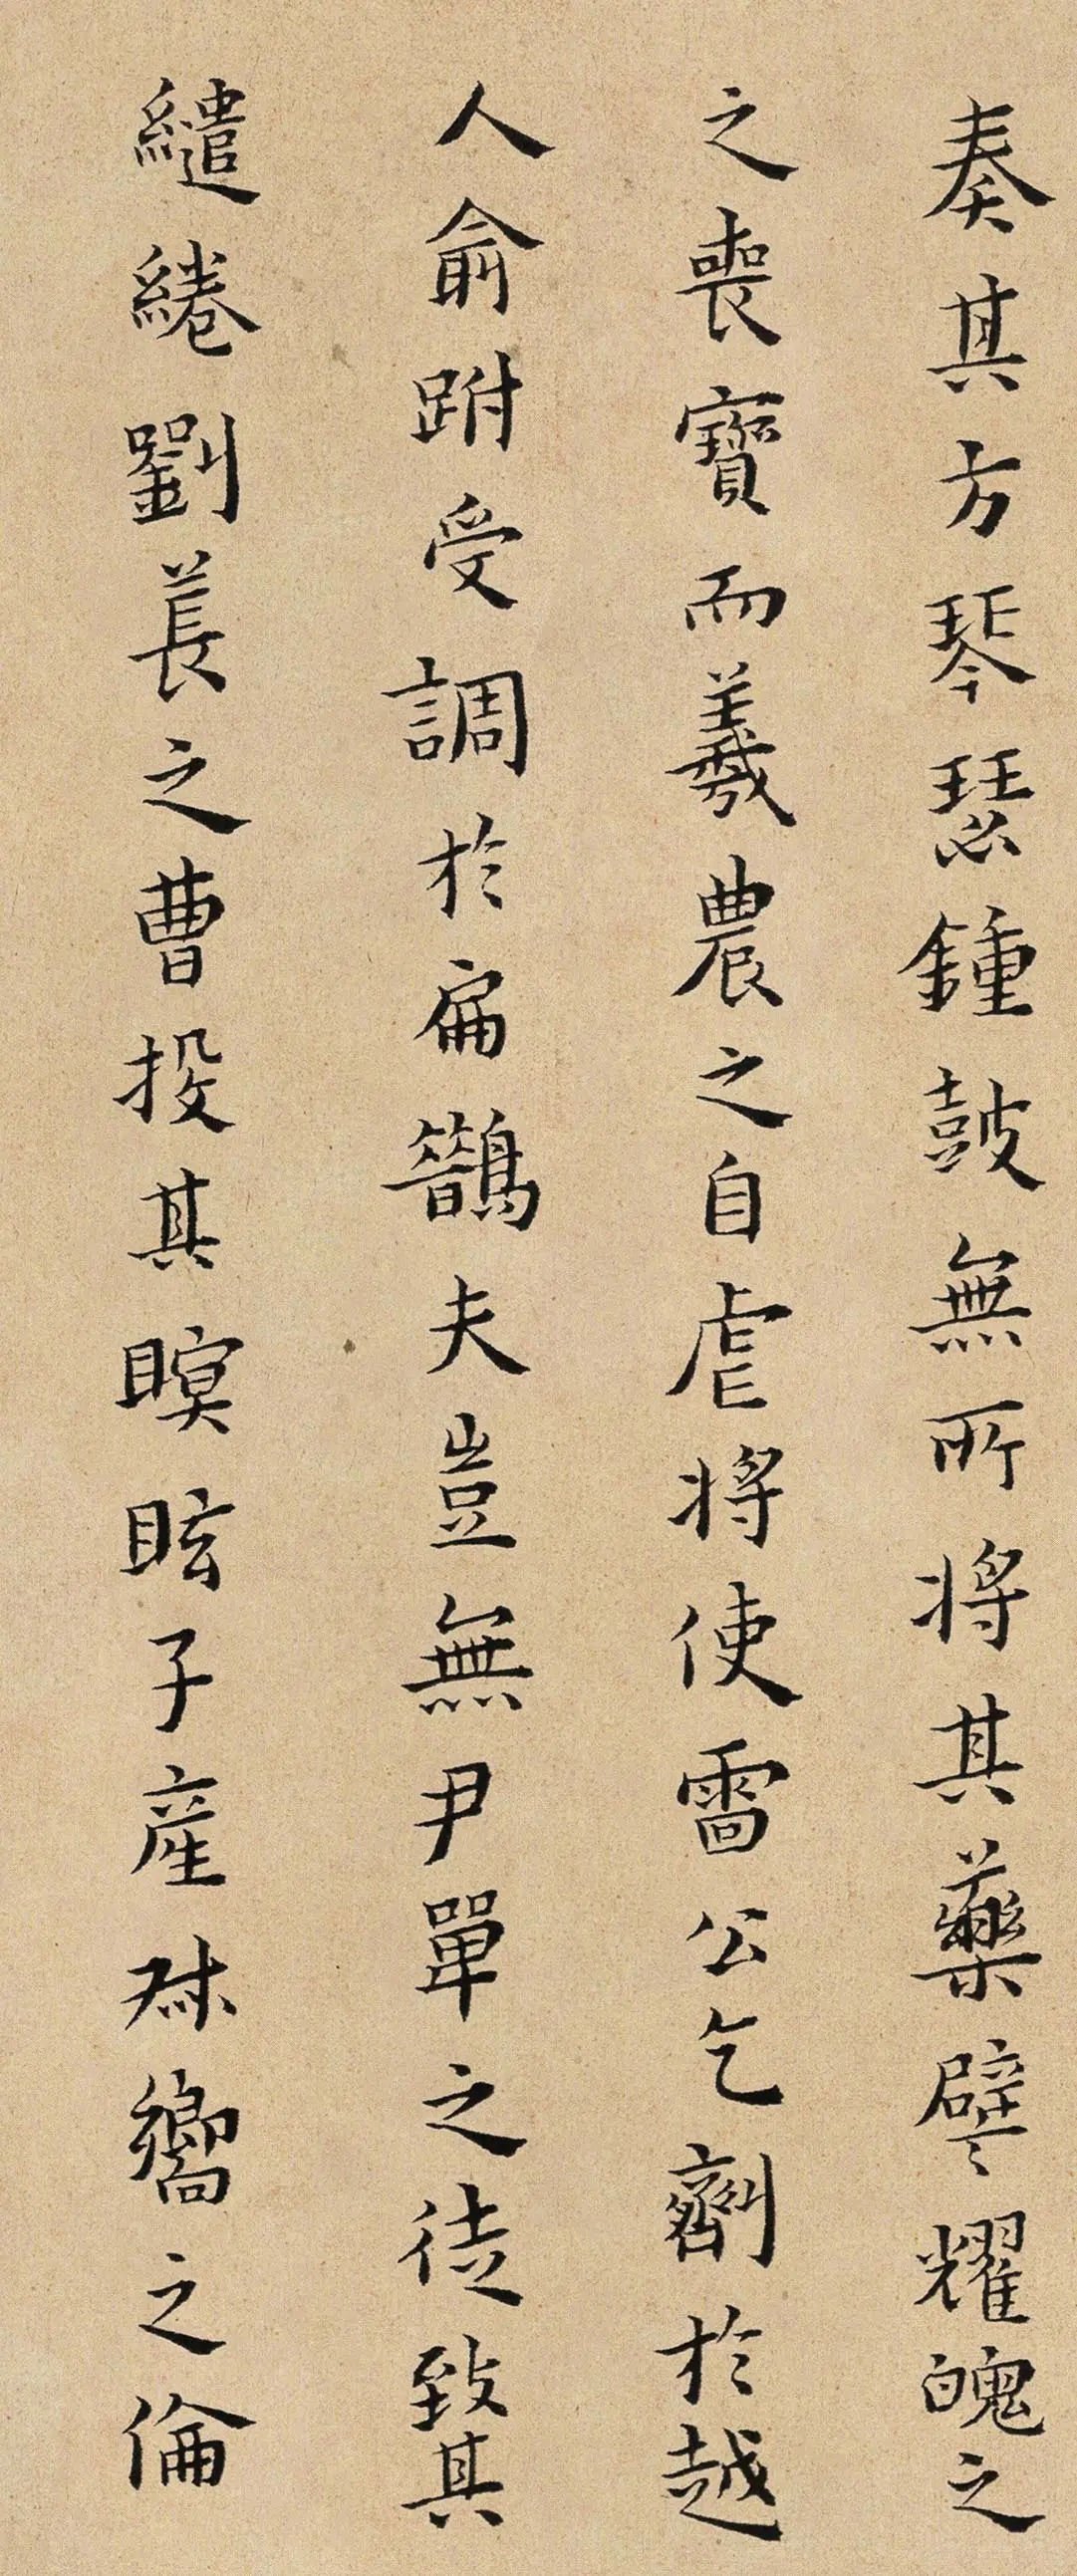 奏其方琴瑟鍾鼓無所將其藥譬耀魄之
之喪寶而羲農之自虐將使雷公乞劑於越
人俞跗受調於扁鵲夫豈無尹單之徒致其
繾綣劉萇之曹投其瞑眩子產叔嚮之倫